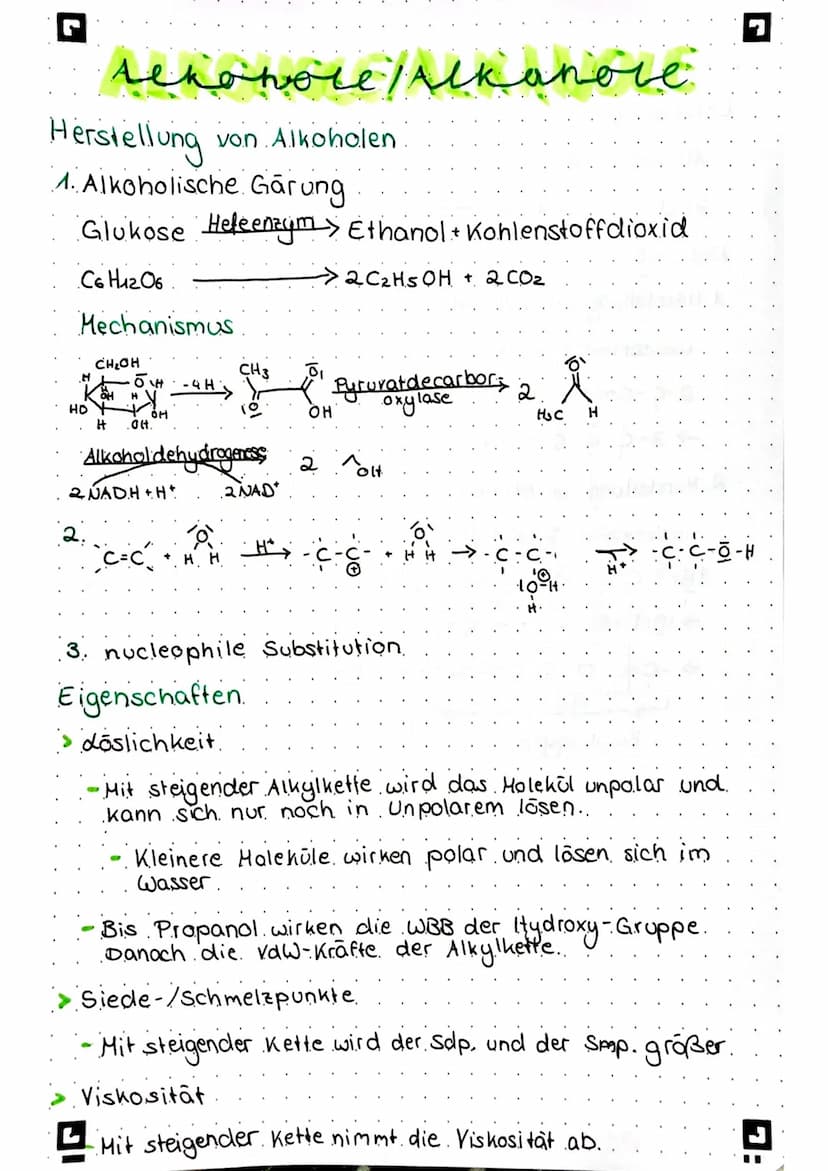 Alkohole/Alkanole
Herstellung von Alkoholen
1. Alkoholische Gärung
Glukose Hefeenzym → Ethanol + Kohlenstoffdioxid
C6H12O6 → 2C2H5OH + 2CO2
Mechanismus
CH2OH
H O H -4H → CH3 O Pyruvatdecarbor- → 2 O
HO OH H OH IO OH oxylase H3C H
H OH
Alkoholdehydrogenase 2 OH
2NADH + H+ 2NAD+
2. C=C + H O H H+ → -C-C- + H O H → -C-C- → -C-C-O-H
⊕ IO⊕-H H+
H
3. nucleophile Substitution
Eigenschaften
> Löslichkeit
- Mit steigender Alkylkette wird das Molekül unpolar und
kann sich nur noch in Unpolarem lösen.
- Kleinere Moleküle wirken polar und lösen sich im
Wasser.
- Bis Propanol wirken die WBB der Hydroxy-Gruppe.
Danach die vdW-Kräfte der Alkylkette.
> Siede-/Schmelzpunkte
- Mit steigender Kette wird der Sdp. und der Smp. größer.
> Viskosität
- Mit steigender Kette nimmt die Viskosität ab.